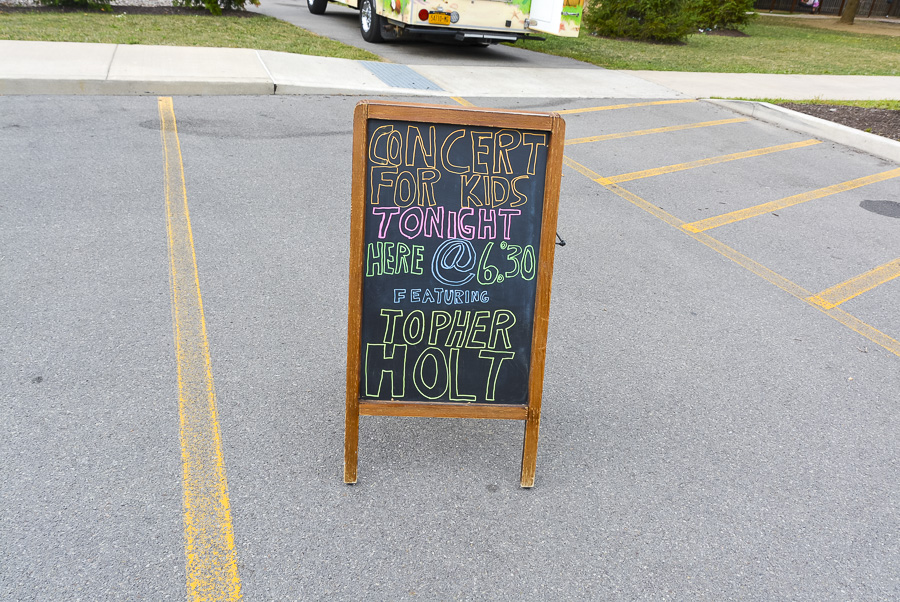 CONCERT
FOR KIDS
TONIGHT
HERE @ 6:30
FEATURING
TOPHER
HOLT